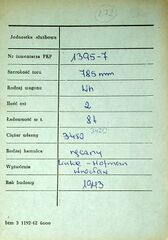 272
Jednostka służbowa
Nr inwentarza PKP 1395-7
Szerokość toru 785 mm
Rodzaj wagonu Wh
Ilość osi 2
Ładowność w t. 8t
3420
Ciężar własny 3450
Rodzaj hamulca ręczny
Wytwórnia Linke-Hofman
Wrocław
Rok budowy 1943